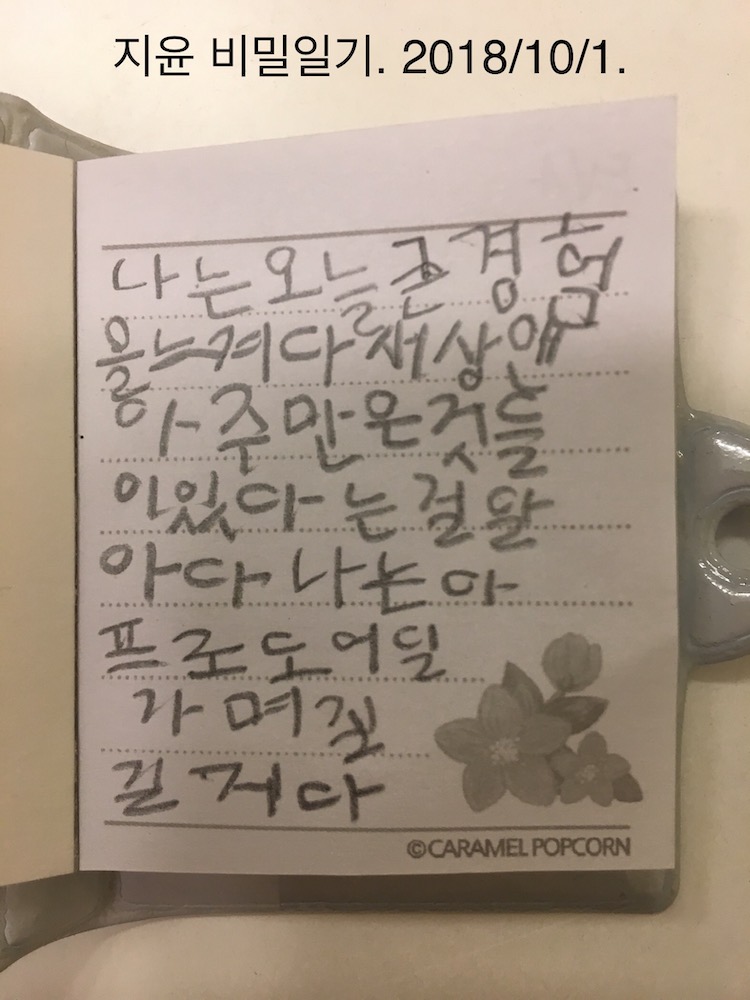 지윤 비밀일기. 2018/10/1.
나는 오늘 큰 경험
을 느겨다 새상애
아주 만은 것들
이 있다는 걸 알
아다 나는 아
프로도 어딜
가며 꽂
길 거다
©CARAMEL POPCORN